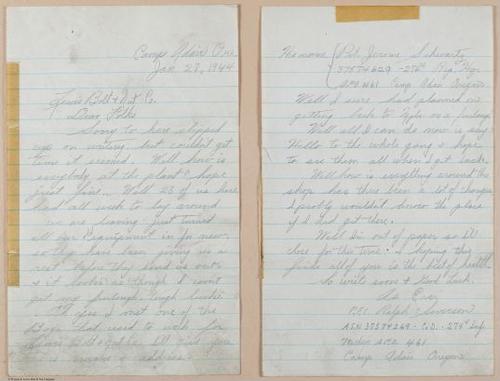 Camp Adair Ore
Jan 27, 1944
Lewis Bolt & Nut Co.
Dear Folks
Sorry to have slipped
up on writing but couldn't get
time it seemed. Well how is
everybody at the plant I hope
just fine. Well 23 of us here
had all week to lay around
we are leaving just turned
all our equipment in for new,
so they have been giving us a
rest before they send us out
& it looks as though I won't
get my furlough. Tough luck.
Oh yes I met one of the
Boys that used to work for
Lewis Bolt & Nut Co. I'll give you
his name & address.
His name Pvt Jerome Schwartz
37574629 - 276th Reg Hq.
APO 461 Camp Adair Oregon
Well I sure had planned on
getting back to on a furlough
Well all I can do now is say
Hello to the whole gang & hope
to see them all when I get back.
Well how is everything around the
shop has there been a lot of changes
I probly wouldn't know the place
if I did get there.
Well I'm out of paper so I'll
close for this time. Hoping this
finds all of you in the best of health.
So write soon & Good Luck.
As Ever
Pfc. Ralph
ASN 37574269 - Co. D. - 274th Inf.
APO 461
Camp Adair Oregon